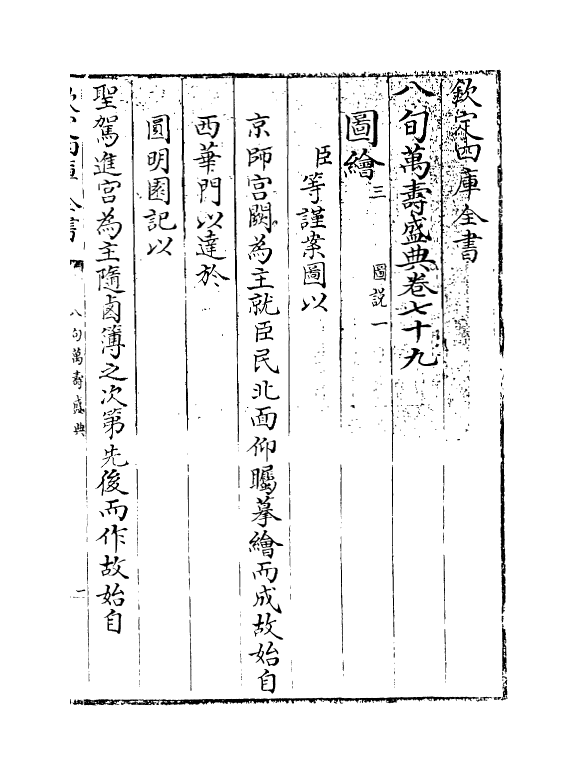 欽定四庫全書
八旬萬壽盛典卷七十九
圖繪三 圖說一
臣等謹案圖以
京師宫闕為主就臣民北面仰矚摹繪而成故始自
西華門以達於
圓明園記以
聖駕進宫為主隨鹵簿之次第先後而作故始自
欽定四庫全書 八旬萬壽盛典 一